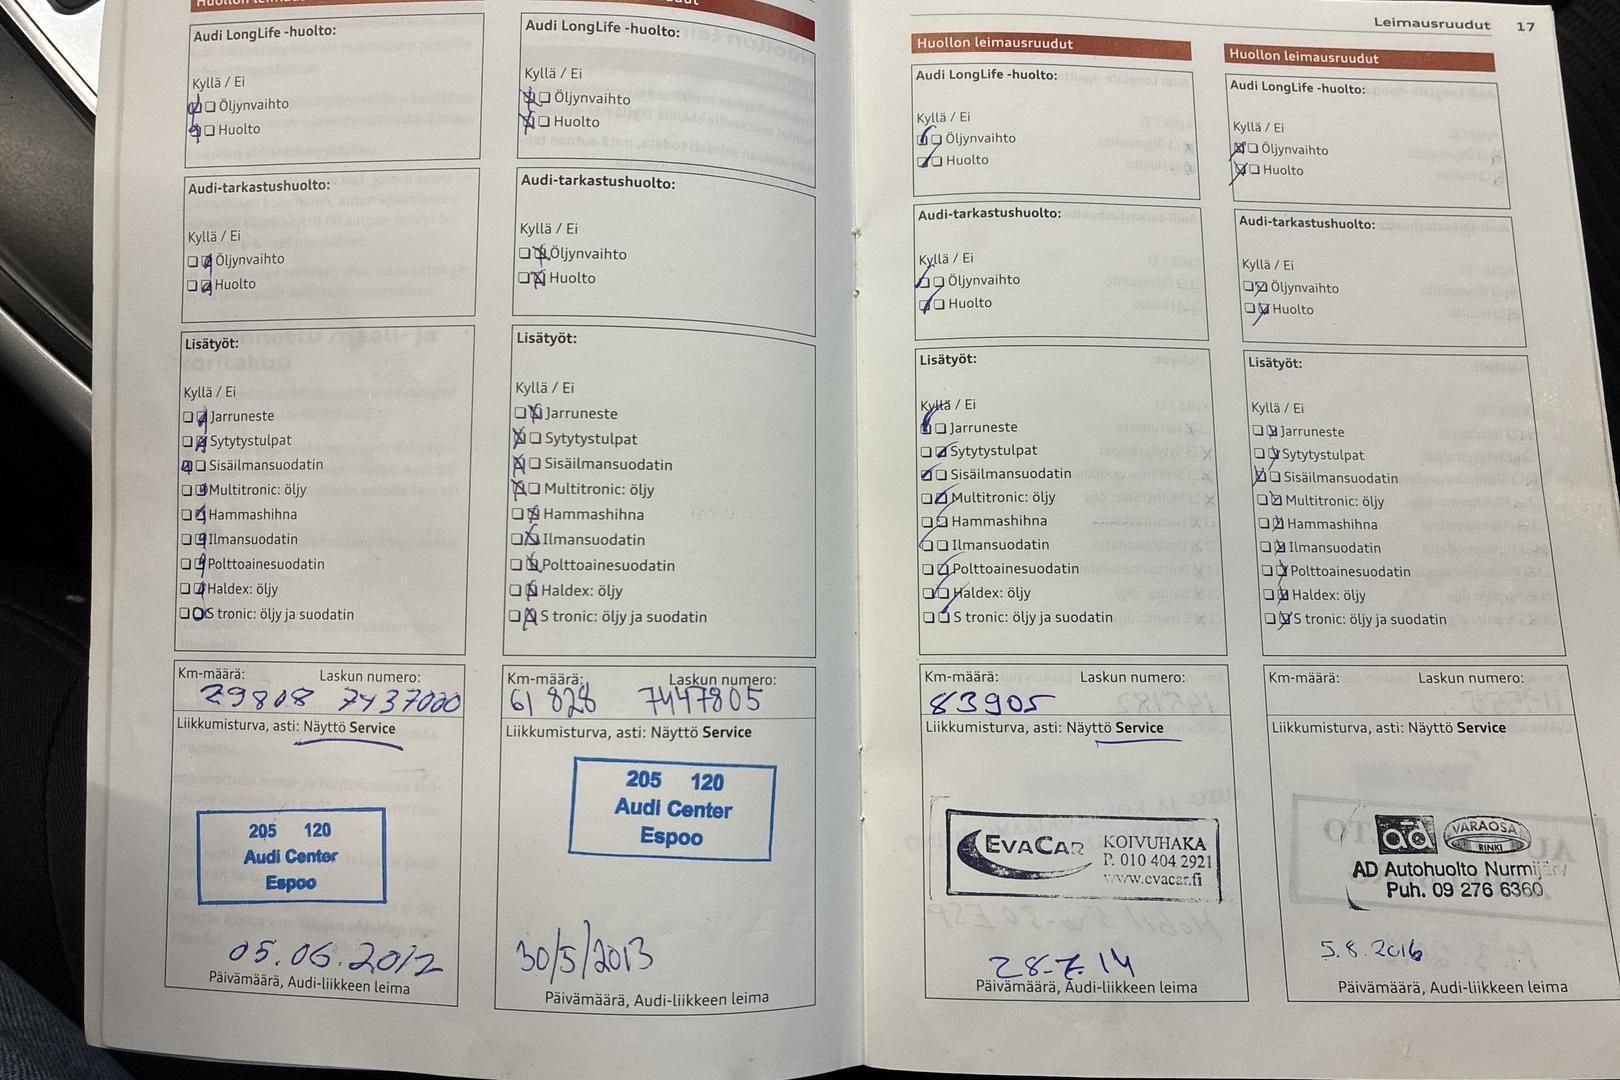 Leimausruudut 17
Audi LongLife -huolto:
Kyllä / Ei
Öljynvaihto
Huolto
Audi-tarkastushuolto:
Kyllä / Ei
Öljynvaihto
Huolto
Lisätyöt:
Kyllä / Ei
Jarruneste
Sytytystulpat
Sisäilmansuodatin
Multitronic: öljy
Hammashihna
Ilmansuodatin
Polttoainesuodatin
Haldex: öljy
S tronic: öljy ja suodatin
Km-määrä: Laskun numero:
29808 7437000
Liikkumisturva, asti: Näyttö Service
205 120
Audi Center
Espoo
05.06.2012
Päivämäärä, Audi-liikkeen leima
Audi LongLife -huolto:
Kyllä / Ei
Öljynvaihto
Huolto
Audi-tarkastushuolto:
Kyllä / Ei
Öljynvaihto
Huolto
Lisätyöt:
Kyllä / Ei
Jarruneste
Sytytystulpat
Sisäilmansuodatin
Multitronic: öljy
Hammashihna
Ilmansuodatin
Polttoainesuodatin
Haldex: öljy
S tronic: öljy ja suodatin
Km-määrä: Laskun numero:
61 828 7447805
Liikkumisturva, asti: Näyttö Service
205 120
Audi Center
Espoo
30/5/2013
Päivämäärä, Audi-liikkeen leima
Huollon leimausruudut
Audi LongLife -huolto:
Kyllä / Ei
Öljynvaihto
Huolto
Audi-tarkastushuolto:
Kyllä / Ei
Öljynvaihto
Huolto
Lisätyöt:
Kyllä / Ei
Jarruneste
Sytytystulpat
Sisäilmansuodatin
Multitronic: öljy
Hammashihna
Ilmansuodatin
Polttoainesuodatin
Haldex: öljy
S tronic: öljy ja suodatin
Km-määrä: Laskun numero:
83905
Liikkumisturva, asti: Näyttö Service
EVACAR KOIVUHAKA
P. 010 404 2921
www.evacar.fi
28.7.14
Päivämäärä, Audi-liikkeen leima
Huollon leimausruudut
Audi LongLife -huolto:
Kyllä / Ei
Öljynvaihto
Huolto
Audi-tarkastushuolto:
Kyllä / Ei
Öljynvaihto
Huolto
Lisätyöt:
Kyllä / Ei
Jarruneste
Sytytystulpat
Sisäilmansuodatin
Multitronic: öljy
Hammashihna
Ilmansuodatin
Polttoainesuodatin
Haldex: öljy
S tronic: öljy ja suodatin
Km-määrä: Laskun numero:
Liikkumisturva, asti: Näyttö Service
ad VARAOSA
RINKI
AD Autohuolto Nurmijärvi
Puh. 09 276 6360
5.8.2016
Päivämäärä, Audi-liikkeen leima